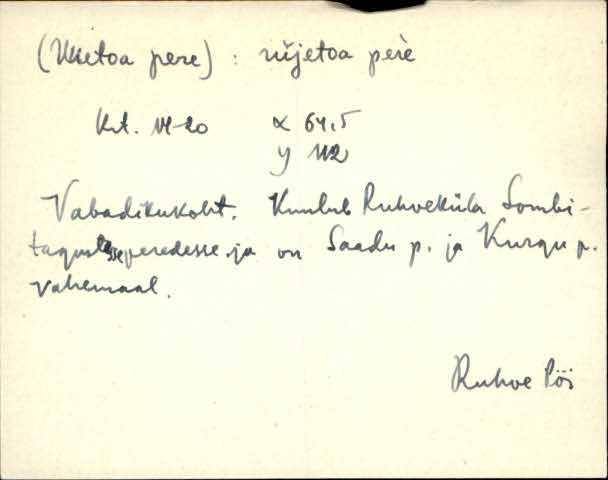 (Uuetoa pere) : ùijetoa pere
Krt. VI-20 x 64,5
y 112
Vabadikukoht. Kuulub Ruhveküla Sombi-
tagustesse peredesse ja on Saadu p. ja Kurqu p.
vahemaal.
Ruhve Pöi